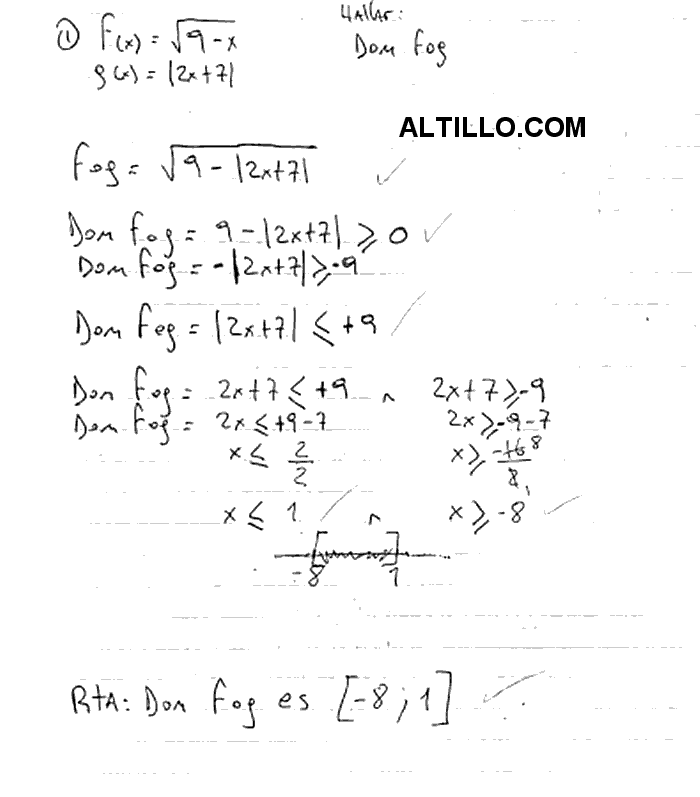 ① f(x) = √9-x
Hallar:
g(x) = |2x+7|
Dom fog
ALTILLO.COM
fog = √9 - |2x+7| ✓
Dom fog = 9 - |2x+7| ≥ 0 ✓
Dom fog = -|2x+7| ≥ -9
Dom fog = |2x+7| ≤ +9
Dom fog = 2x+7 ≤ +9 ∧ 2x+7 ≥ -9
Dom fog = 2x ≤ +9-7 2x ≥ -9-7
x ≤ 2/2 x ≥ -16 8/2 1
x ≤ 1 ∧ x ≥ -8 ✓
[ ]
-8 1
RtA: Dom fog es [-8 ; 1] ✓